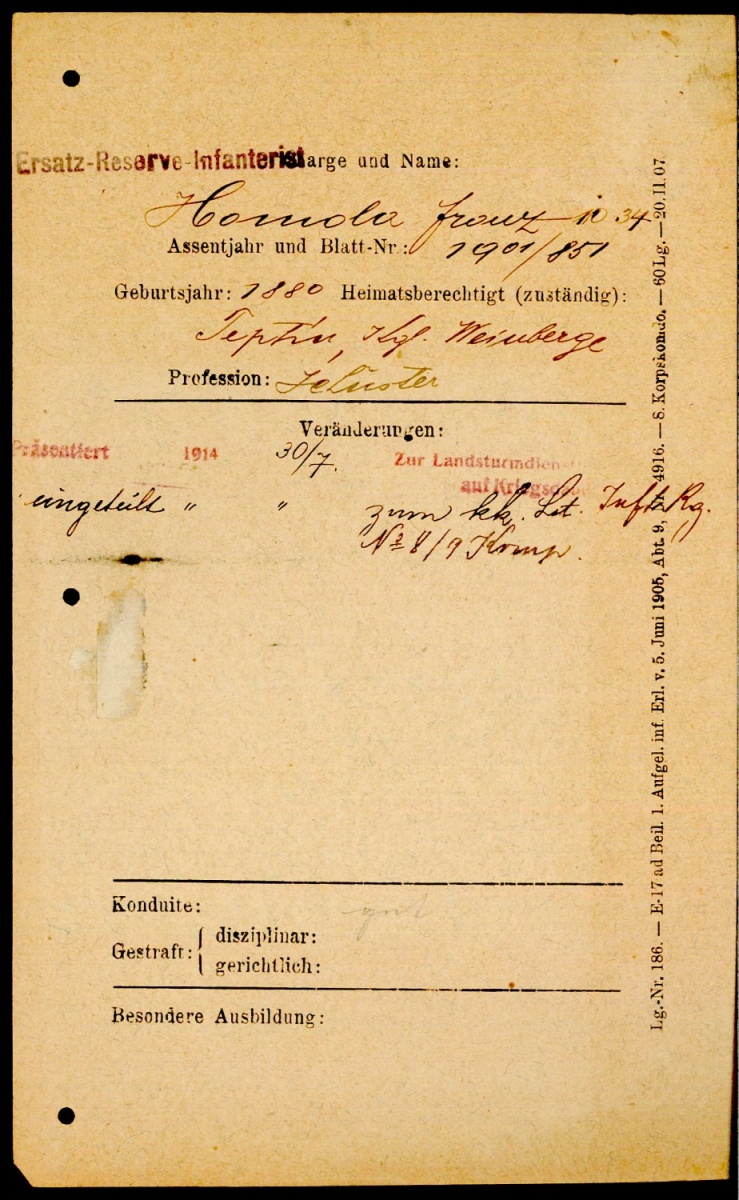 Ersatz-Reserve-Infanterist Charge und Name:
Homola Franz 10 34
Assentjahr und Blatt-Nr.: 1901/851
Geburtsjahr: 1880 Heimatsberechtigt (zuständig):
Teptin, Kgl. Weinberge
Profession: Schuster
Veränderungen:
Präsentiert 1914 30/7. Zur Landsturmdien
auf Kriegsd
eingeteilt " " zum kk. Lst. Inft. Rg.
No 8/9 Komp.
Konduite: gut
Gestraft: disziplinar:
gerichtlich:
Besondere Ausbildung:
Lg.-Nr. 186. — E-17 ad Beil. 1. Aufgel. inf. Erl. v. 5. Juni 1905, Abt. 9, Nr. 4916. — 8. Korpskomdo. — 60 Lg. — 20.11.07.